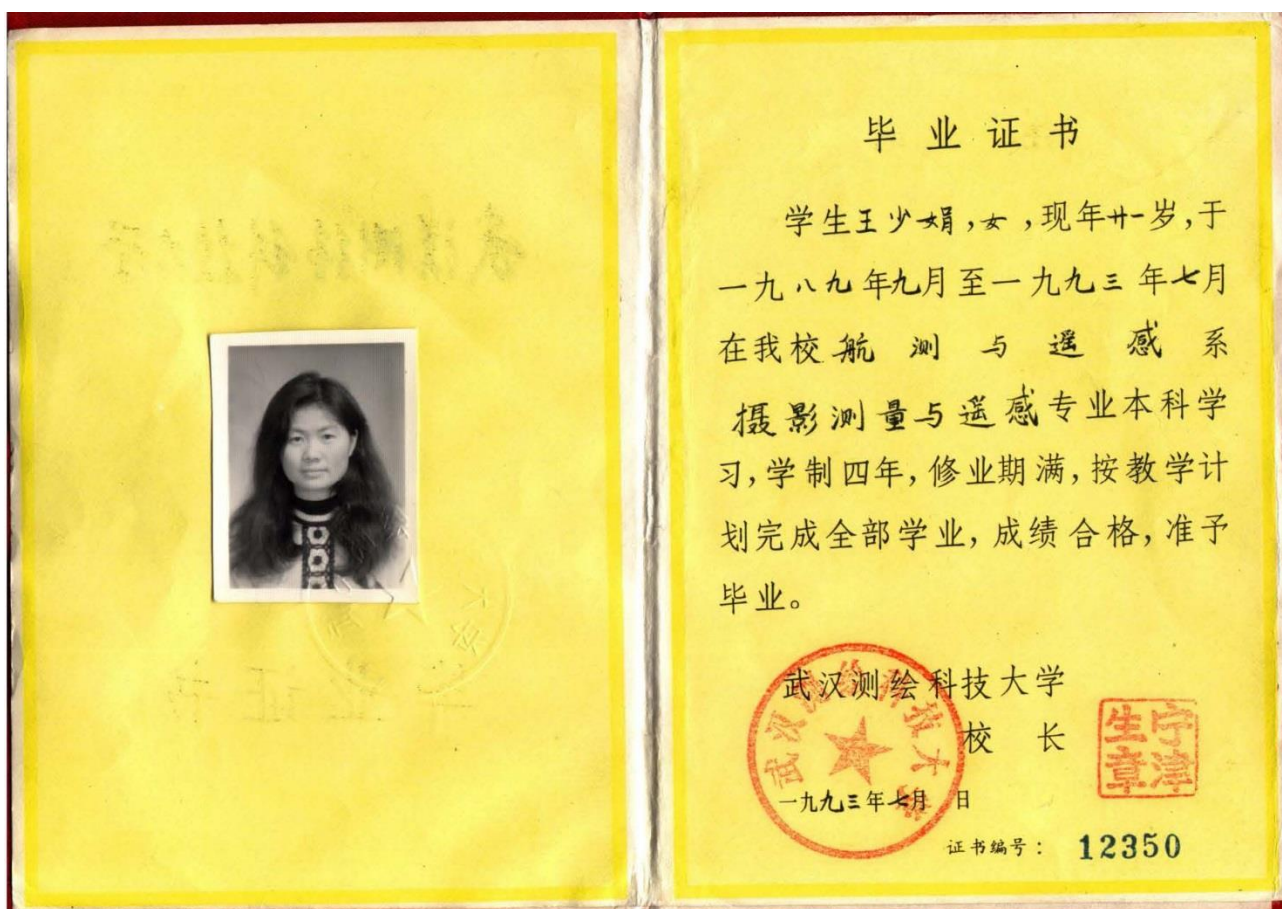 毕业证书
学生王少娟,女,现年廿一岁,于
一九八九年九月至一九九三年七月
在我校航测与遥感系
摄影测量与遥感专业本科学
习,学制四年,修业期满,按教学计
划完成全部学业,成绩合格,准予
毕业。
武汉测绘科技大学
校长
宁津生章
武汉测绘科技大学
一九九三年七月 日
证书编号: 12350